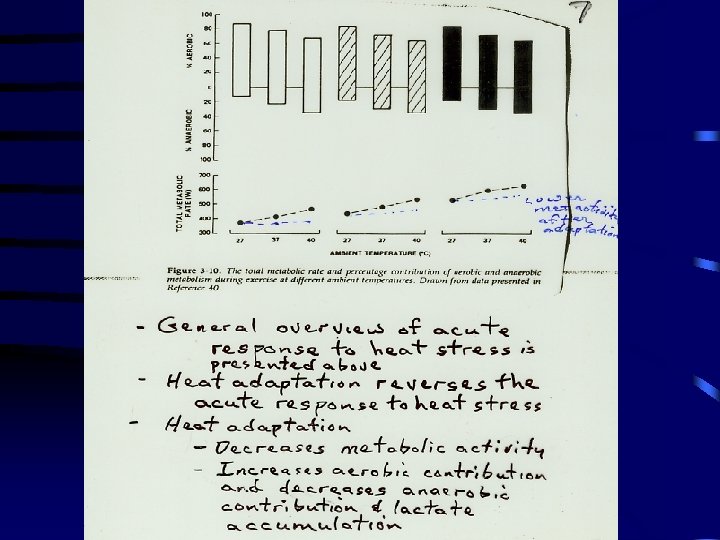 7
100
80
60
40
20
0
20
40
60
80
100
% AEROBIC
% ANAEROBIC
700
600
500
400
300
TOTAL METABOLIC
RATE (W)
27 37 40 27 37 40 27 37 40
AMBIENT TEMPERATURE (°C)
Lower
after
adaptation
Figure 3-10. The total metabolic rate and percentage contribution of aerobic and anaerobic
metabolism during exercise at different ambient temperatures. Drawn from data presented in
Reference 40
- General overview of acute
response to heat stress is
presented above
- Heat adaptation reverses the
acute response to heat stress
- Heat adaptation
- Decreases metabolic activity
- Increases aerobic contribution
and decreases anaerobic
contribution & lactate
accumulation